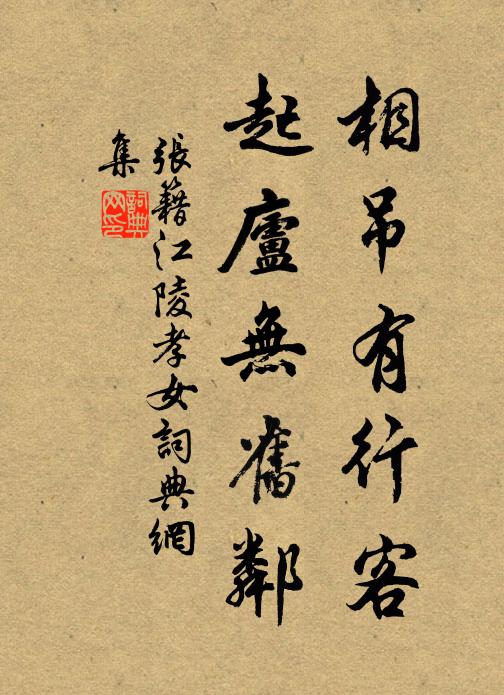 相吊有行客
起廬無舊鄰
張籍江陵孝女詞典網
集
詞典網印